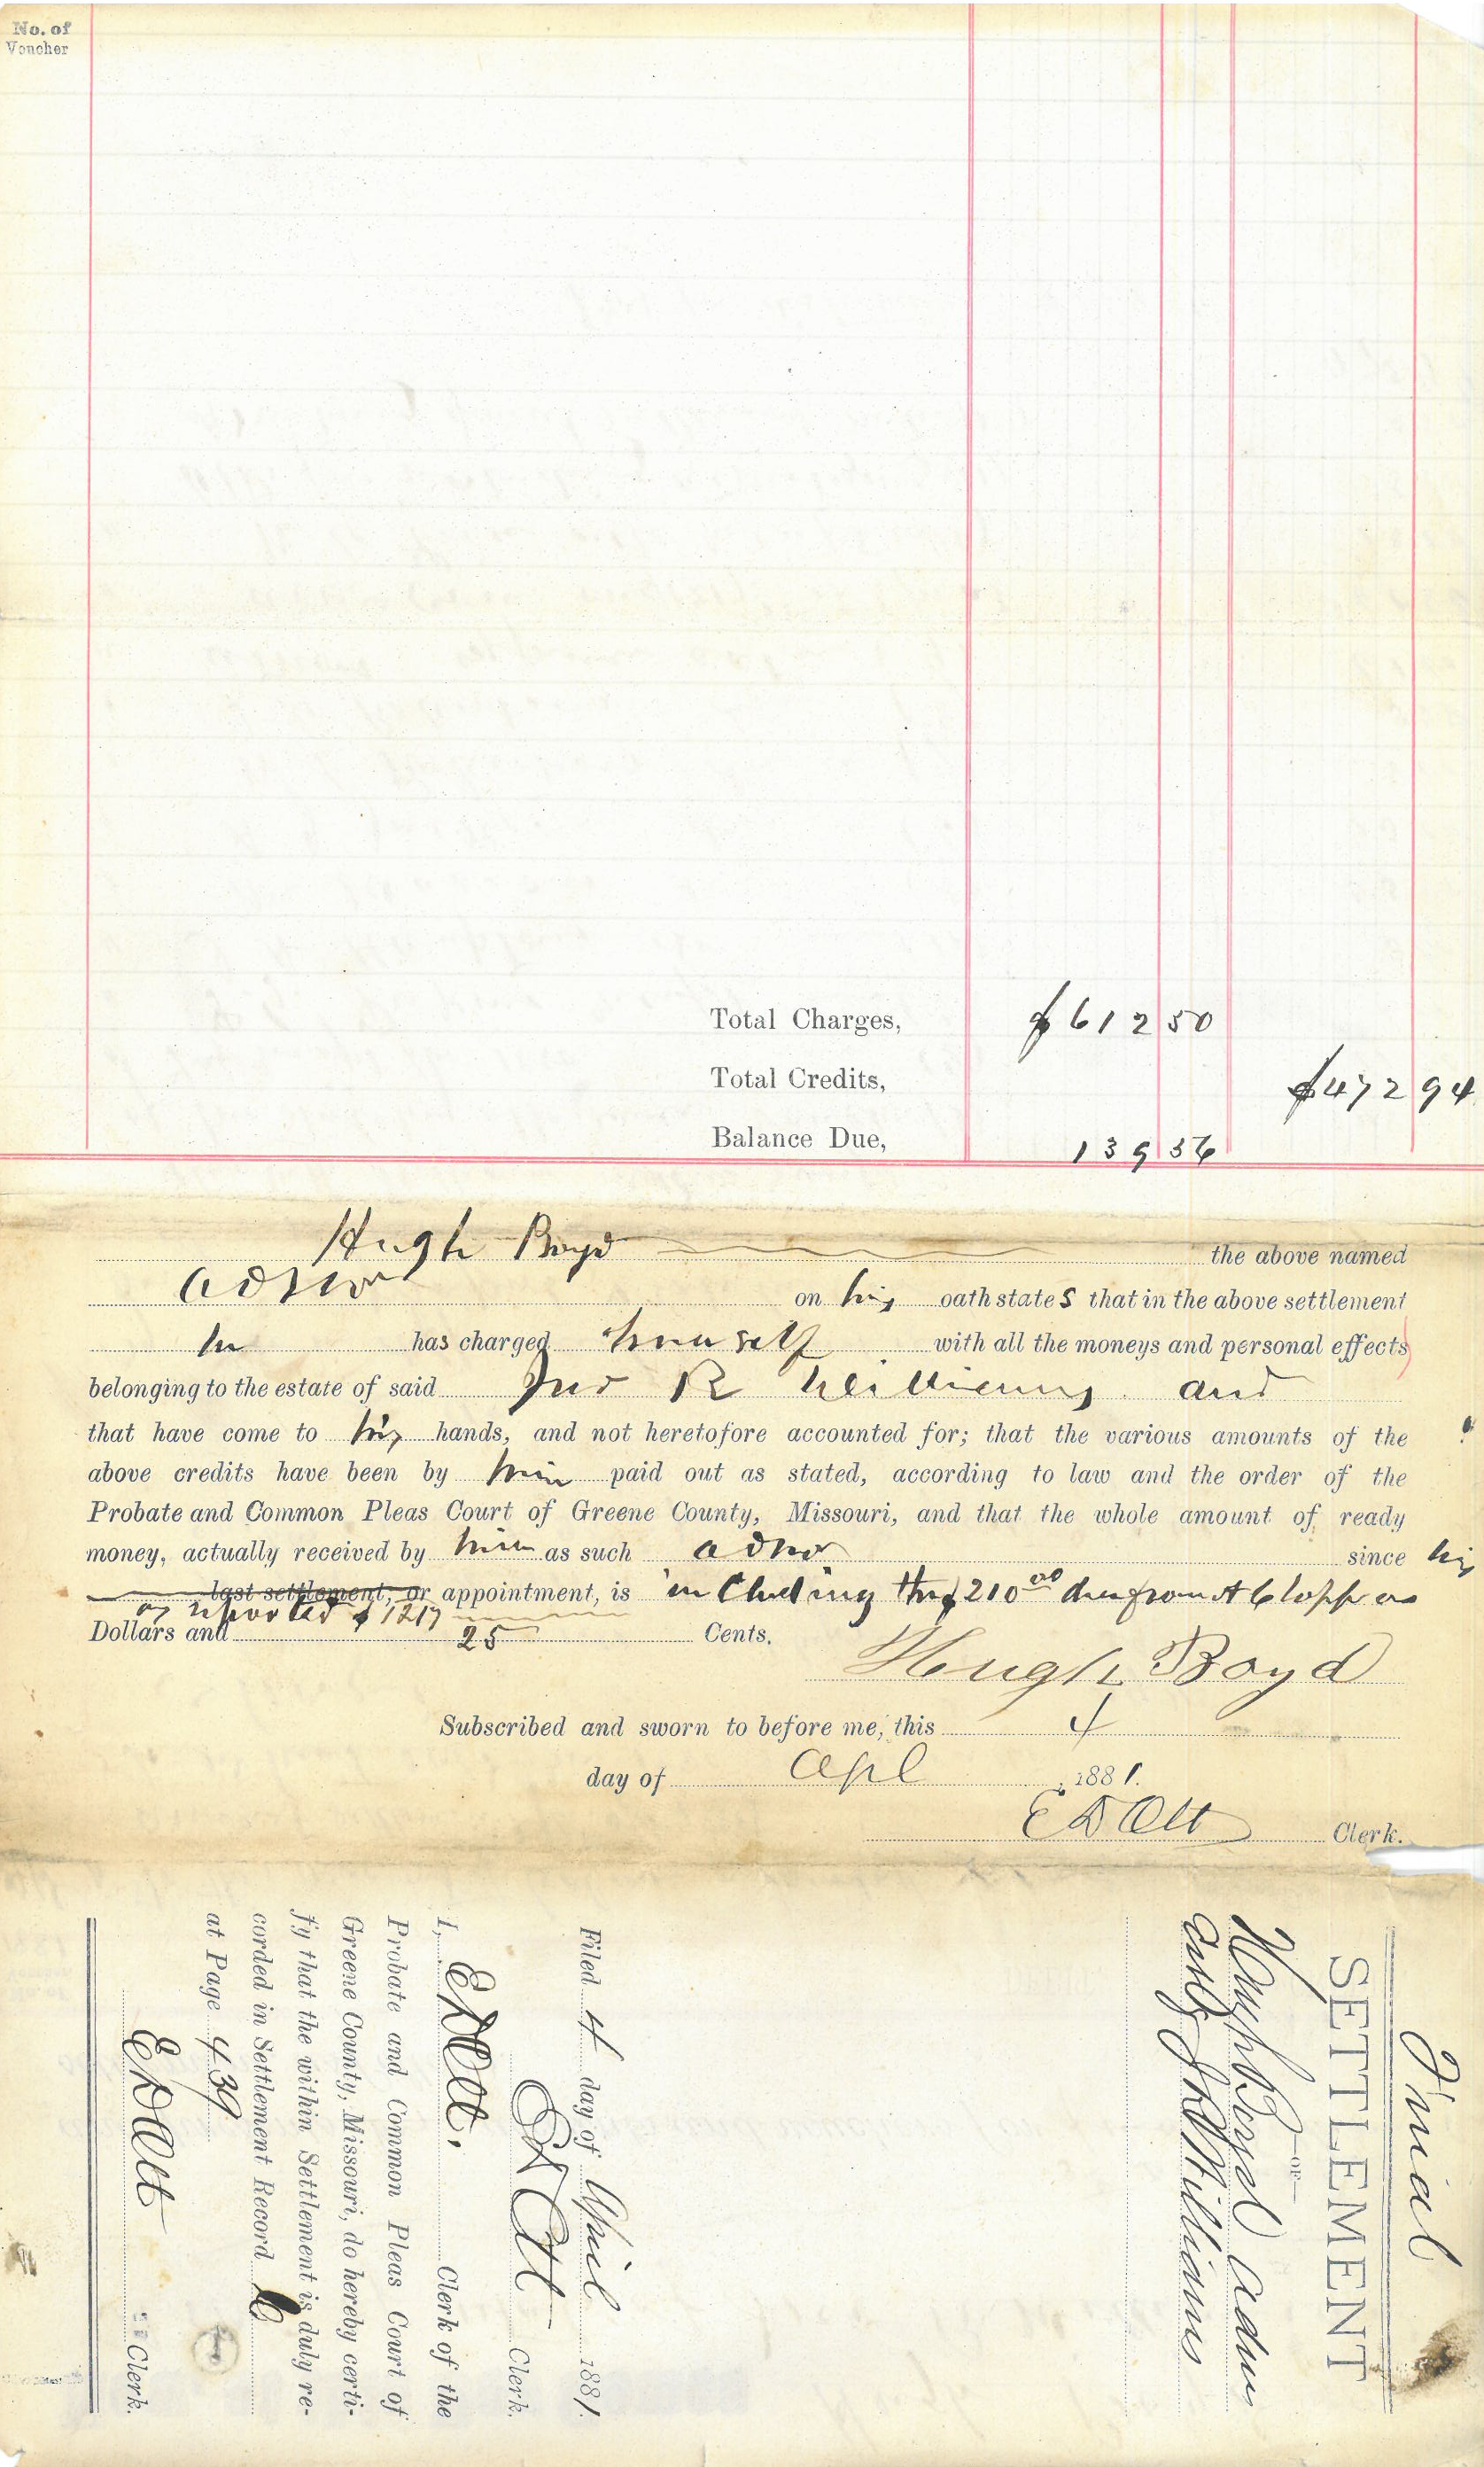 No. of
Voucher
Total Charges, $612 50
Total Credits, $472 94
Balance Due, 139 56
Hugh Boyd the above named
admr on his oath states that in the above settlement
he has charged himself with all the moneys and personal effects
belonging to the estate of said Jno R Williams and
that have come to his hands, and not heretofore accounted for; that the various amounts of the
above credits have been by him paid out as stated, according to law and the order of the
Probate and Common Pleas Court of Greene County, Missouri, and that the whole amount of ready
money, actually received by him as such admr since his
last settlement, or appointment, is including the $210 00 due from A Clapp as
as reported $1217
Dollars and 25 Cents.
Hugh Boyd
Subscribed and sworn to before me, this 4
day of Apl , 1881.
E D Ott Clerk.
Final
SETTLEMENT
—OF—
Hugh Boyd admr
of J R Williams
Filed 4 day of April 1881.
E D Ott Clerk.
I, E D Ott, Clerk of the
Probate and Common Pleas Court of
Greene County, Missouri, do hereby certi-
fy that the within Settlement is duly re-
corded in Settlement Record
at Page 439
E D Ott Clerk.